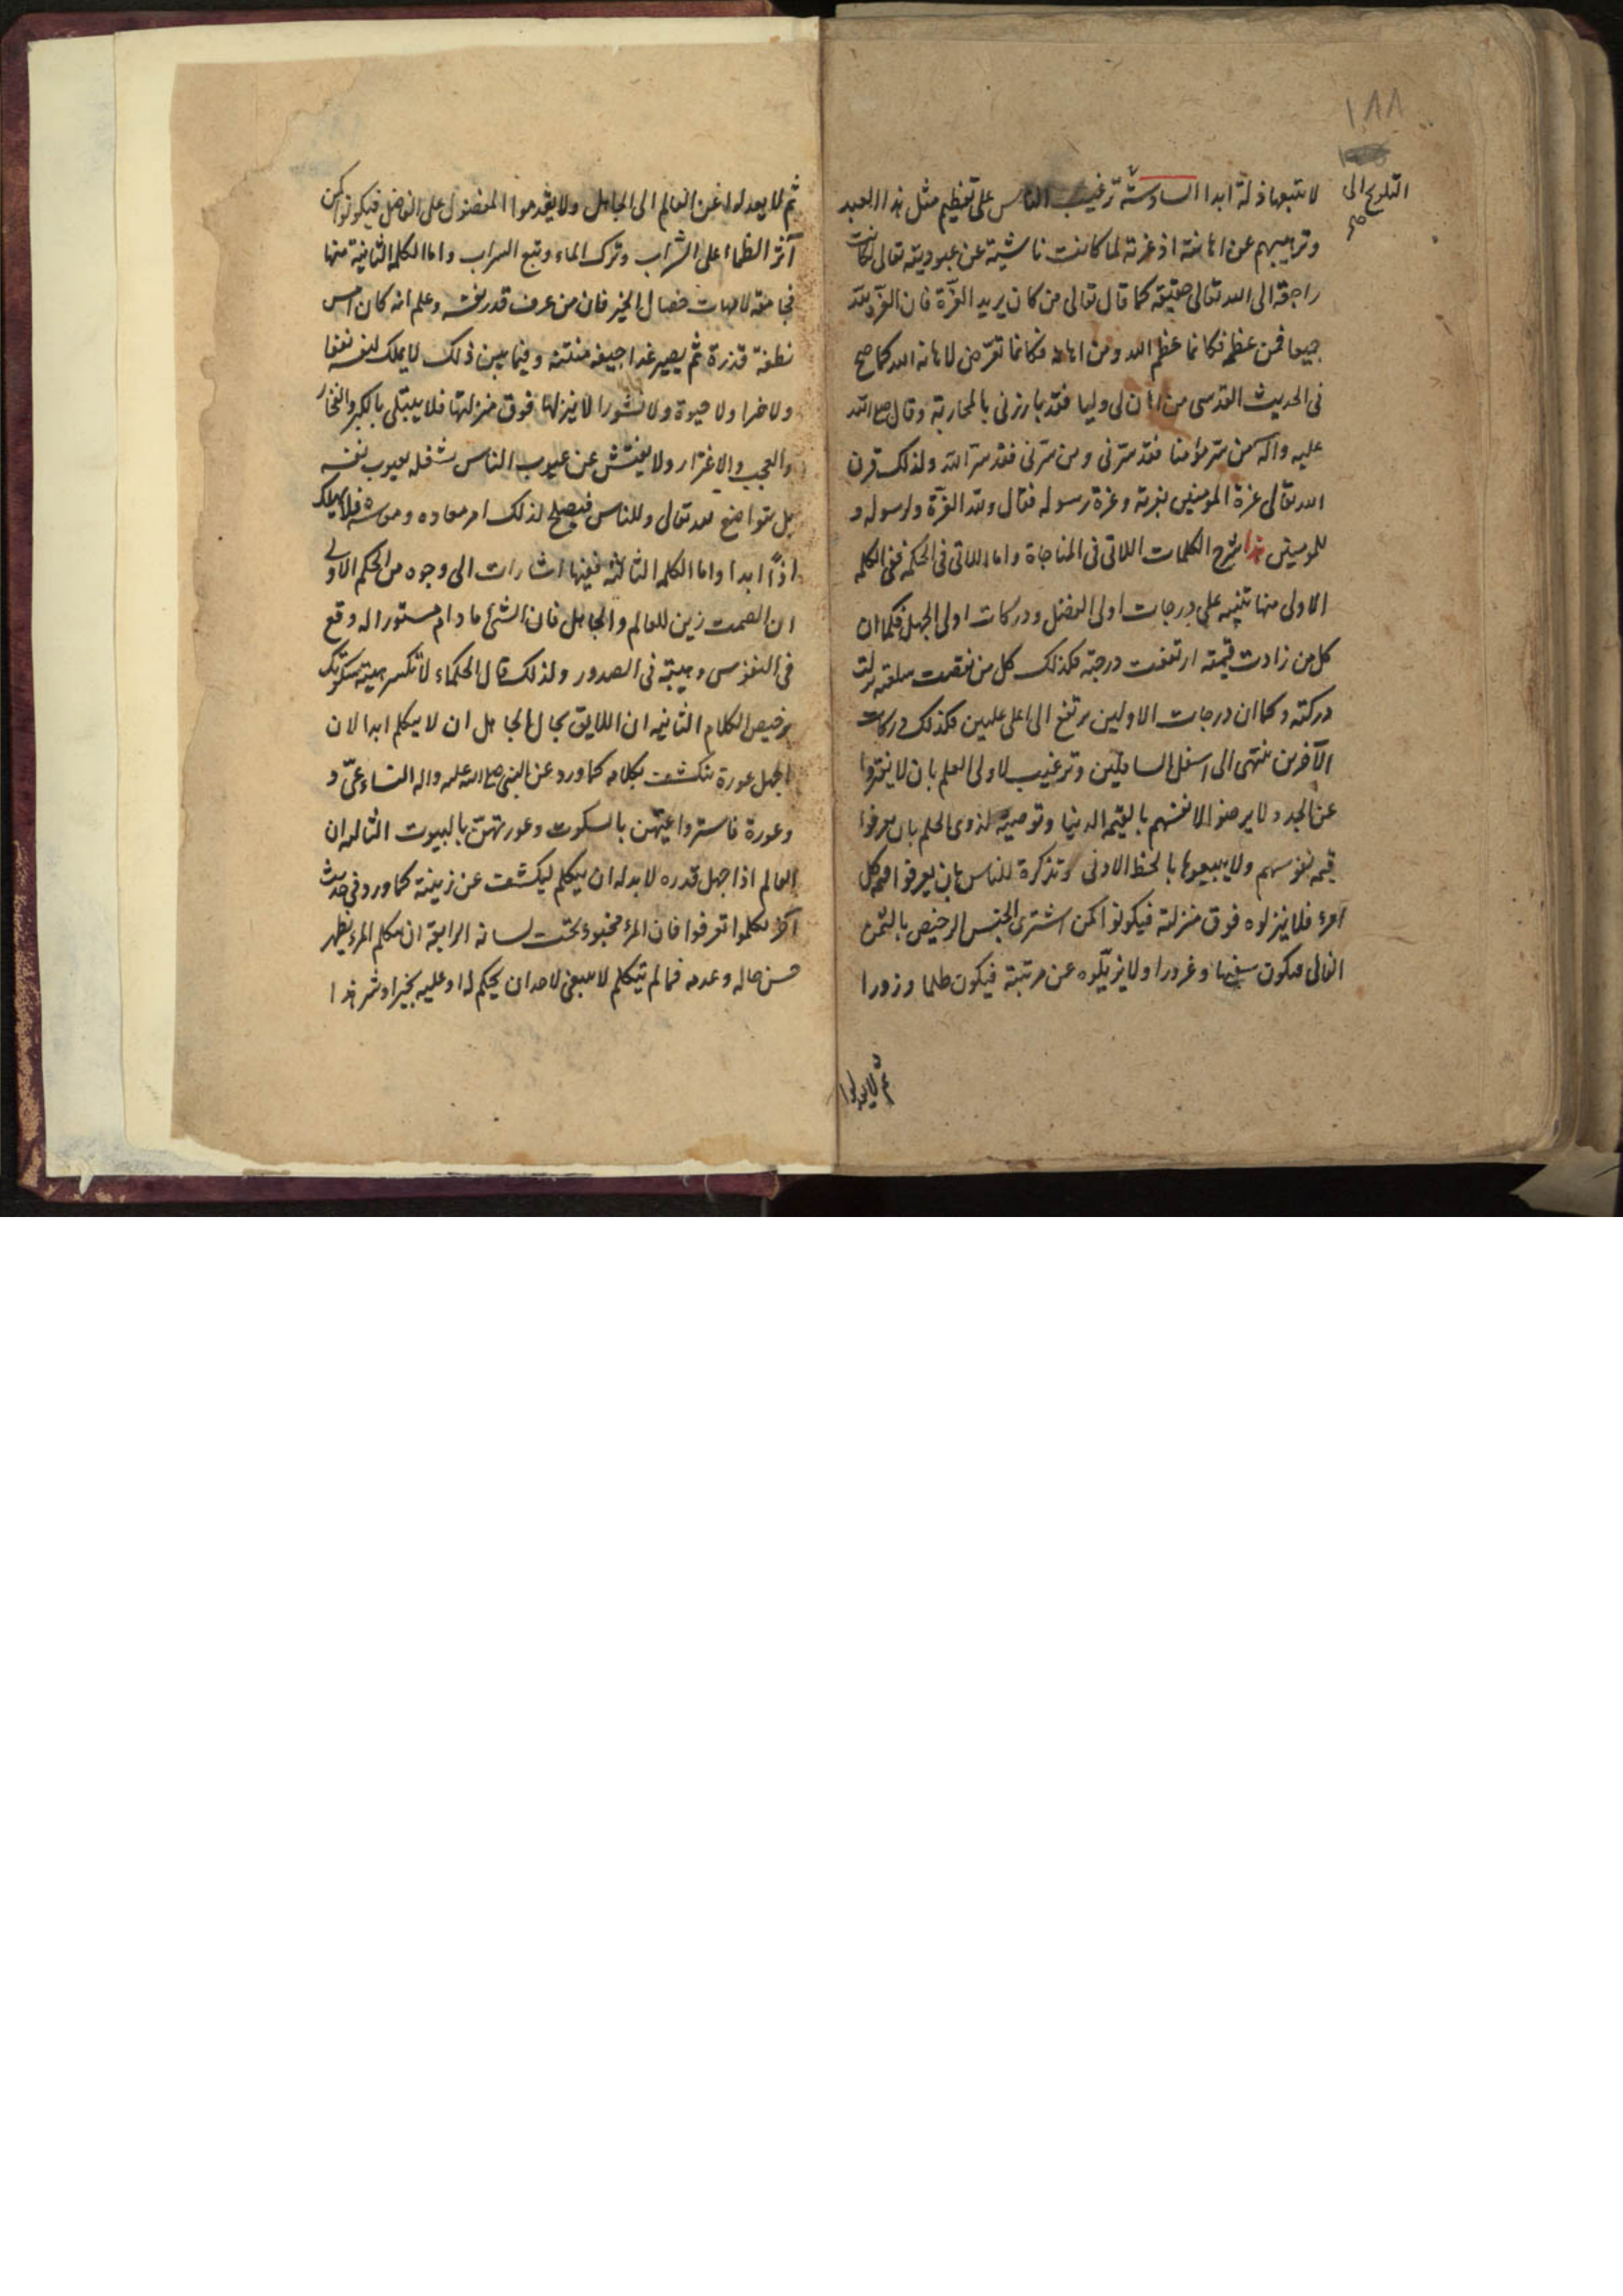 ١٨٨
التلويح الى
صح
لا تتبعها ذلة ابدا السادسة ترغيب الناس على تعظيم مثل هذا العبد
وترهيبهم عن اهانته اذ عزته لما كانت ناشية عن عبوديته تعالى كانت
راجعة الى الله تعالى حقيقة كما قال تعالى من كان يريد العزة فان العزة لله
جميعا فمن عظمه فكانما عظم الله ومن اهانه فكانما تعرض لاهانة الله كما صح
فى الحديث القدسى من اهان لى وليا فقد بارزنى بالمحاربة وقال صلى الله
عليه واله من سر مؤمنا فقد سرنى ومن سرنى فقد سر الله ولذلك قرن
الله تعالى عزة المومنين بعزته وعزة رسوله فقال ولله العزة ولرسوله و
للمومنين هذا شرح الكلمات اللاتى فى المناجاة واما اللاتى فى الحكمة ففى الكلمة
الاولى منها تنبيه على درجات اولى الفضل ودركات اولى الجهل فكما ان
كل من زادت قيمته ارتفعت درجته فكذلك كل من نقصت سلعته نزلت
دركته وكما ان درجات الاولين يرتفع الى اعلى عليين فكذلك دركات
الآخرين ينتهى الى اسفل السافلين وترغيب لاولى العلم بان لا يفتروا
عن الجد ولا يرضوا لانفسهم بالقيم الدنيا وتوصية لذوى الحلم بان يعرفوا
قيمة نفوسهم ولا يبيعوها بالحظ الادنى وتذكرة للناس بان يعرفوا قيمة كل
امرء فلا ينزلوه فوق منزلته فيكونوا كمن اشترى الجنس الرخيص بالثمن
الغالى فيكون سفها وغرورا ولا يزيلوه عن مرتبته فيكون ظلما وزورا
ثم لا يعدلوا
ثم لا يعدلوا عن العالم الى الجاهل ولا يقدموا المفضول على الفاضل فيكونوا كمن
آثر الظماء على الشراب وترك الماء وتبع السراب واما الكلمة الثانية منها
فجامعة لامهات خصال الخير فان من عرف قدر نفسه وعلم انه كان امس
نطفة قذرة ثم يصير غدا جيفة منتنة وفيما بين ذلك لا يملك لنفسه نفعا
ولا ضرا ولا حيوة ولا نشورا لا ينزلها فوق منزلتها فلا يبتلى بالكبر والفخار
والعجب والاغترار ولا يفتش عن عيوب الناس لشغله بعيوب نفسه
بل يتواضع لله تعالى وللناس فيصلح لذلك امر معاده ومعاشه فلا يهلك
اذاً ابدا واما الكلمة الثالثة ففيها اشارات الى وجوه من الحكم الاولى
ان الصمت زين للعالم والجاهل فان الشئ ما دام مستورا له وقع
فى النفوس وهيبة فى الصدور ولذلك قال الحكماء لا تكسر هيبة سكوتك
برخيص الكلام الثانية ان اللايق بحال الجاهل ان لا يتكلم ابدا لان
الجهل عورة تنكشف بكلامه كما ورد عن النبى صلى الله عليه واله النساء عىّ و
وعورة فاستروا عيّهن بالسكوت وعورتهن بالبيوت الثالثة ان
العالم اذا جهل قدره لا بد له ان يتكلم ليكشف عن زينته كما ورد فى حديث
آخر تكلموا تعرفوا فان المرء مخبوء تحت لسانه الرابعة ان بتكلم المرء يظهر
حسن حاله وعدمه فما لم يتكلم لا ينبغى لاحد ان يحكم له او عليه بخير او شر هذا